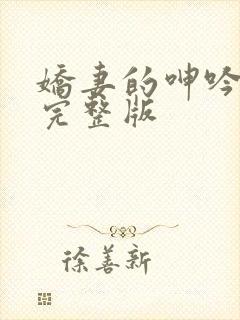 嬌妻的呻吟
完整版
徐善新